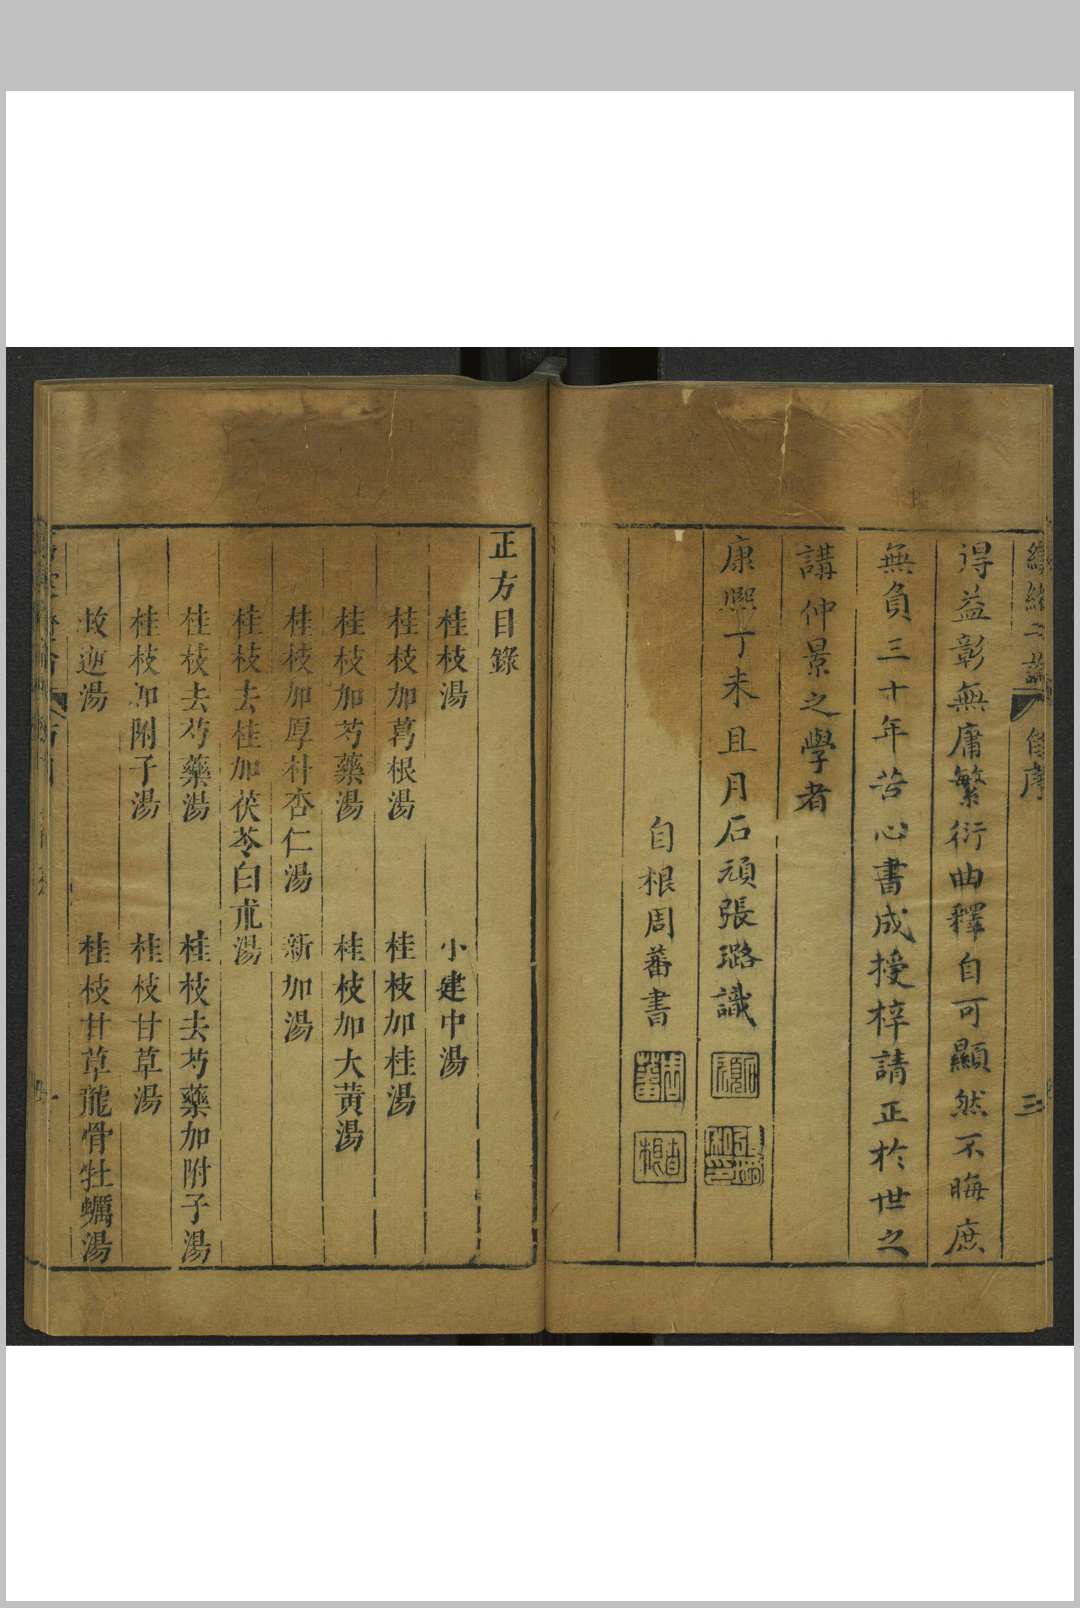 得益彰無庸繁衍曲釋自可顯然不晦庶
無負三十年苦心書成授梓請正於世之
講仲景之學者
康熙丁未且月石頑張璐識
自根周蕃書
三
正方目錄
桂枝湯 小建中湯
桂枝加葛根湯 桂枝加桂湯
桂枝加芍藥湯 桂枝加大黃湯
桂枝加厚朴杏仁湯 新加湯
桂枝去桂加茯苓白朮湯
桂枝去芍藥湯 桂枝去芍藥加附子湯
桂枝加附子湯 桂枝甘草湯
救逆湯 桂枝甘草龍骨牡蠣湯